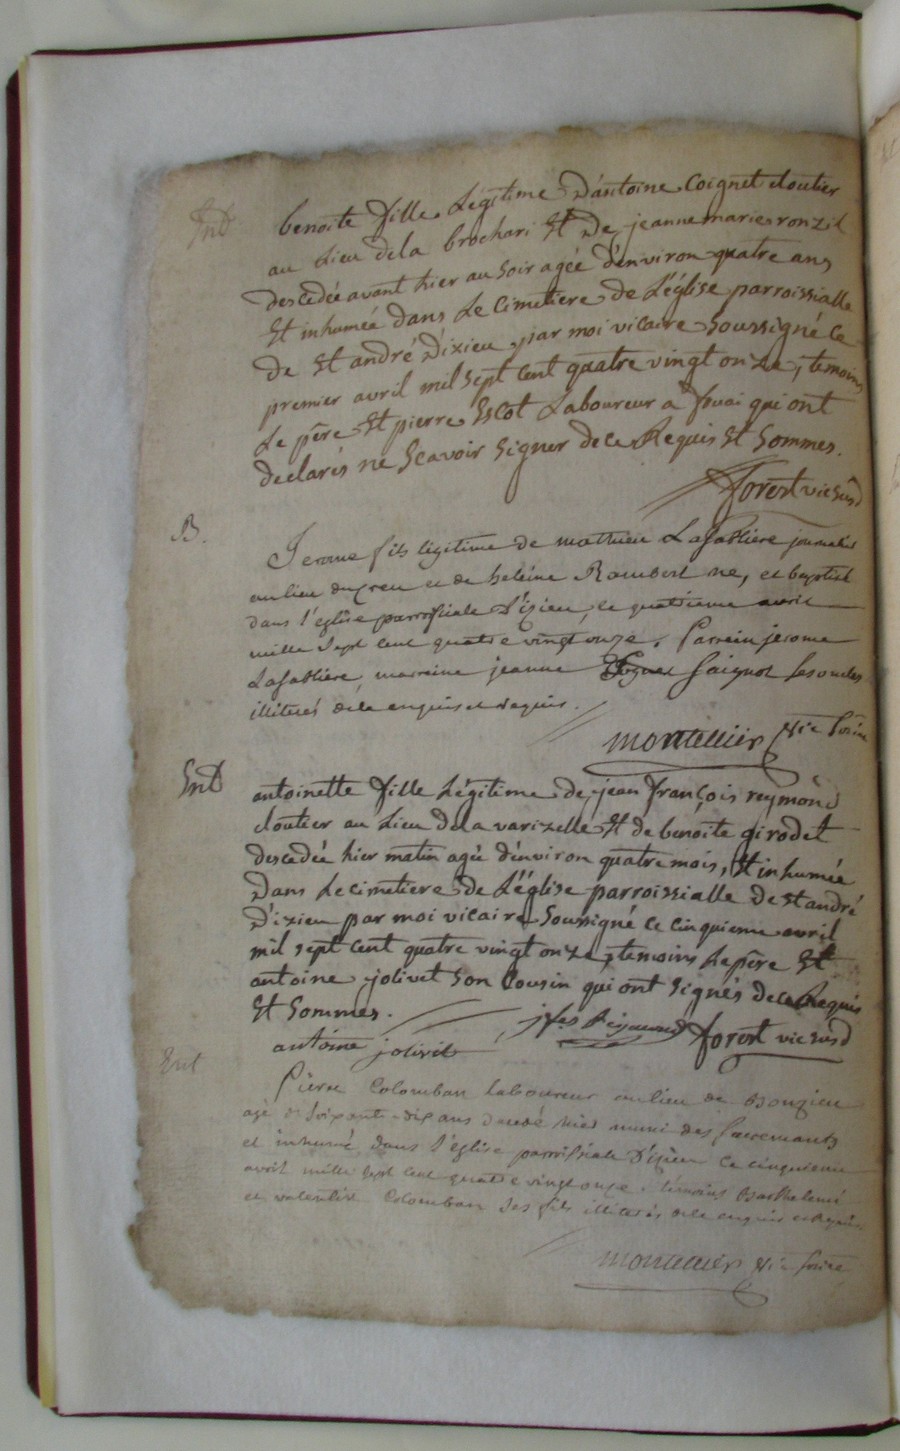 Ent
benoite fille Légitime D'antoine Coignet cloutier
au Lieu dela brochari Et De jeanne marie ronzil
descedée avant hier au soir agée d'environ quatre ans
Et inhumée dans Le Cimetiere de L'église parroissialle
De St andré D'izieu par moi vicaire Soussigné Ce
premier avril mil sept cent quatre vingt onze, temoins
Le père Et pierre Escot Laboureur a qui ont
declarés ne Scavoir Signer de ce Requis Et Sommes.
forest vic susd
B.
Jerome fils légitime de mathieu Lasabliere journalier
au lieu du creu et de heleine Rambert né, et baptisé
dans l'église parroissiale D'izieu, le quatrieme avril
mille sept cent quatre vingt onze. Parrein jerome
Lasabliere, marreine jeanne Saignol ses oncles
illiterés de le enquis et requis.
montellier vic
Ent
antoinette fille Légitime de jean françois reymond
cloutier au Lieu de La varizelle Et de benoite girodet
descedée hier matin agée d'environ quatre mois, Et inhumée
Dans Le cimetiere de L'église parroissialle De St andré
D'izieu par moi vicaire Soussigné ce cinquieme avril
mil sept cent quatre vingt onze, temoins Le père Et
antoine jolivet Son Cousin qui ont Signés de ce Requis
Et Sommes.
antoine jolivet forest vic susd
Ent
Pierre Colomban Laboureur au lieu de
agé de soixante-dix ans decedé hier muni des sacrements
et inhumé dans l'église parroissiale D'izieu ce cinquieme
avril mille sept cent quatre vingt onze. témoins Barthelemi
et Colomban ses fils illiterés de le enquis et requis
montellier vic